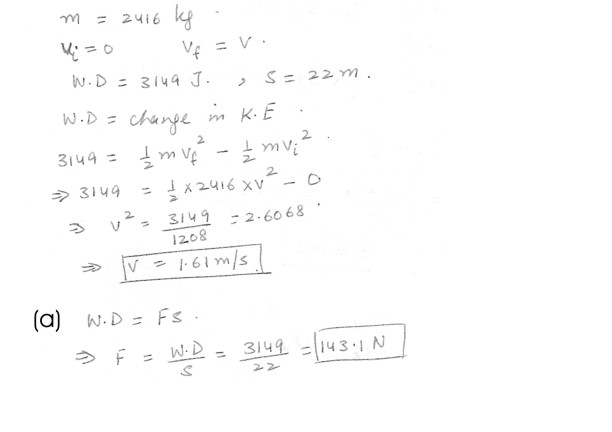 m = 2416 kg.
Vi = 0 Vf = V.
W.D = 3149 J. , S = 22 m.
W.D = change in K.E.
3149 = 1/2 m Vf² - 1/2 m Vi².
⇒ 3149 = 1/2 × 2416 × V² - 0
⇒ V² = 3149/1208 = 2.6068.
⇒ V = 1.61 m/s.
(a) W.D = FS.
⇒ F = W.D/S = 3149/22 = 143.1 N